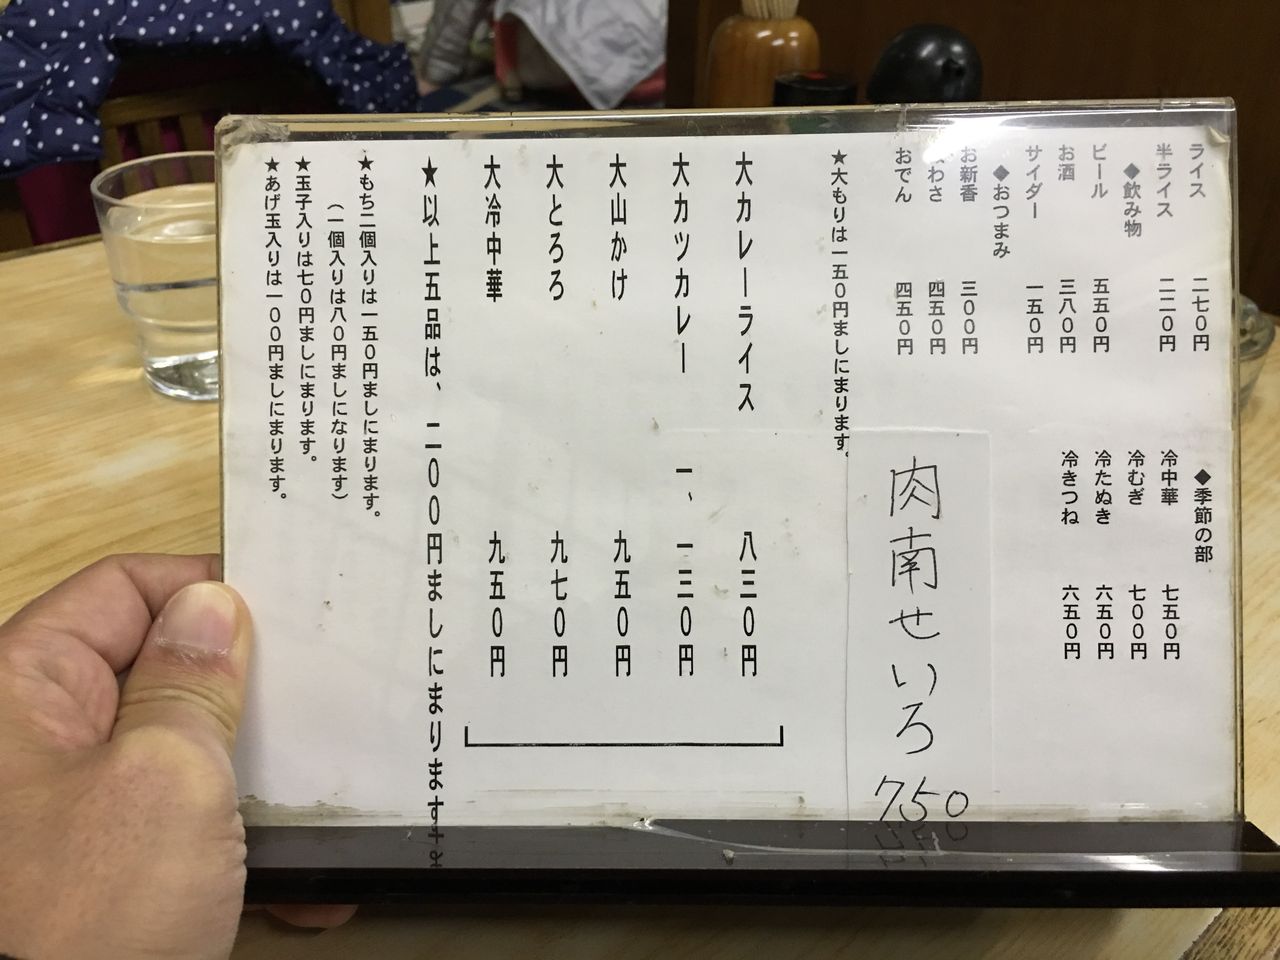 ライス 二七〇円
半ライス 二二〇円
◆飲み物
ビール 五五〇円
お酒 三八〇円
サイダー 一五〇円
◆おつまみ
お新香 三〇〇円
わさ 四五〇円
おでん 四五〇円
◆季節の部
冷中華 七五〇円
冷むぎ 七〇〇円
冷たぬき 六五〇円
冷きつね 六五〇円
肉南せいろ 750円
★大もりは一五〇円ましにまります。
大カレーライス 八三〇円
大カツカレー 一、一三〇円
大山かけ 九五〇円
大とろろ 九七〇円
大冷中華 九五〇円
★以上五品は、二〇〇円ましにまります。
★もち二個入りは一五〇円ましにまります。
（一個入りは八〇円ましになります）
★玉子入りは七〇円ましにまります。
★あげ玉入りは一〇〇円ましにまります。